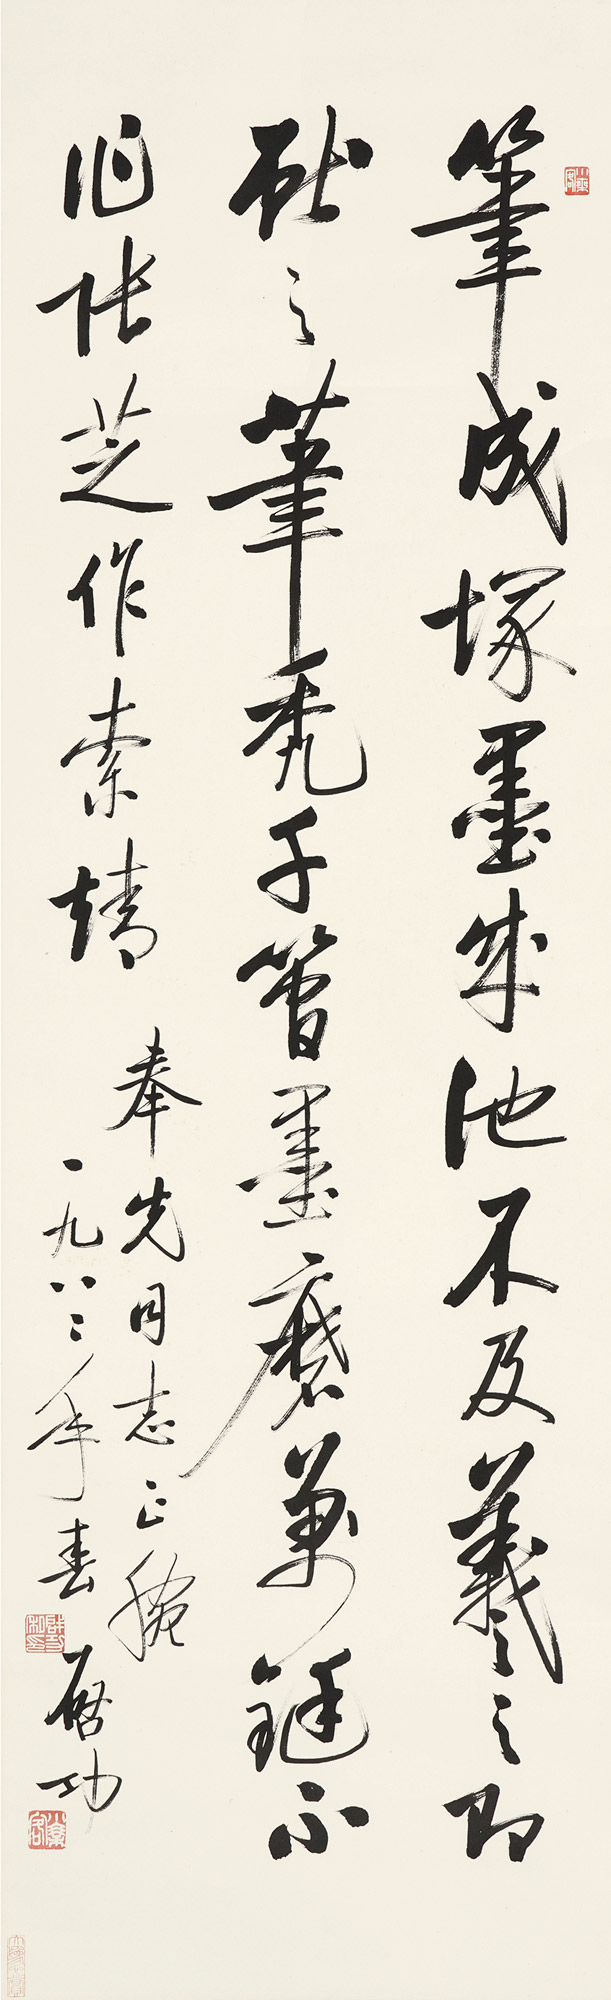 筆成塚墨成池不及羲之即
獻之筆禿千管墨磨萬鋌不
作張芝作索靖
奉先同志正腕
一九八二年春
启功